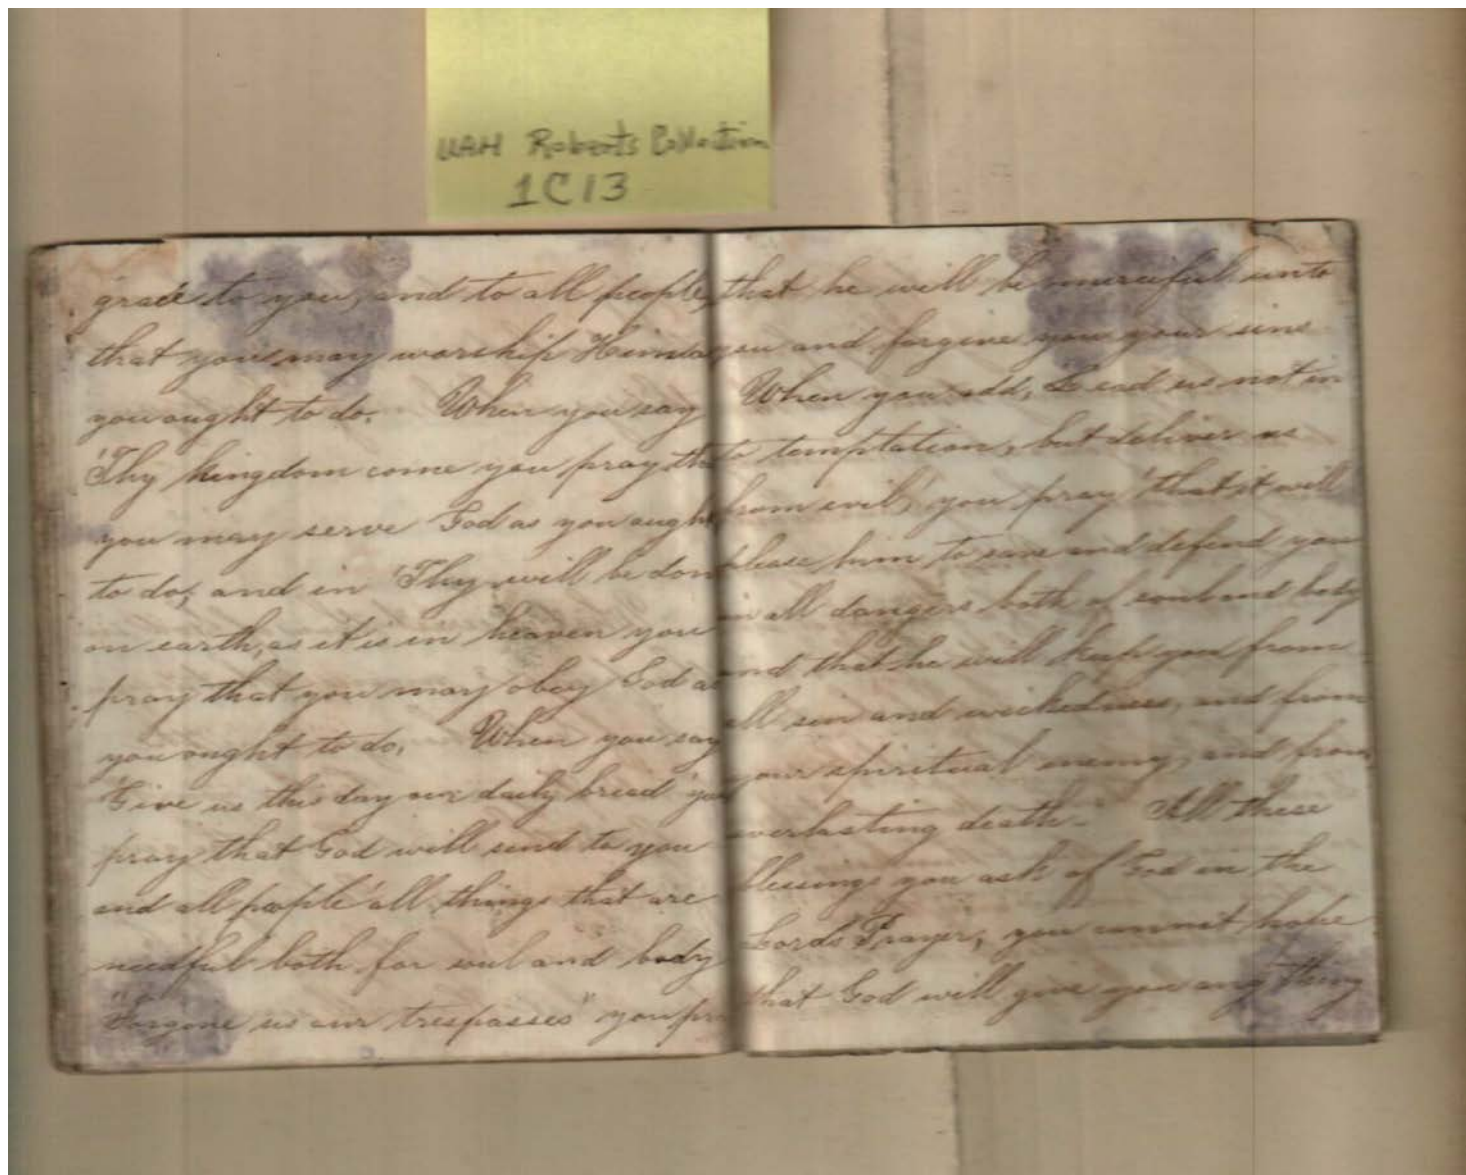 UAH Roberts Collection
1C13
grace to you, and to all people,
that you may worship Him as
you ought to do. When you say
'Thy kingdom come you pray th
you may serve God as you ought
to do, and in 'Thy will be don
on earth, as it is in heaven you
pray that you may obey God as
you ought to do. When you say
'Give us this day our daily bread' you
pray that God will send to you
and all people 'all things that are
needful both for soul and body
"Forgive us our trespasses" you pra
that he will be merciful unto
you and forgive you your sins
When you add, Lead us not in
to temptation, but deliver us
from evil, you pray 'that it will
please him to save and defend you
in all dangers both of soul and body
and that he will keep you from
all sin and wickedness, and from
your spiritual enemy, and from
everlasting death. All these
blessings you ask of God in the
Lords Prayer, you cannot hope
that God will give you any thing